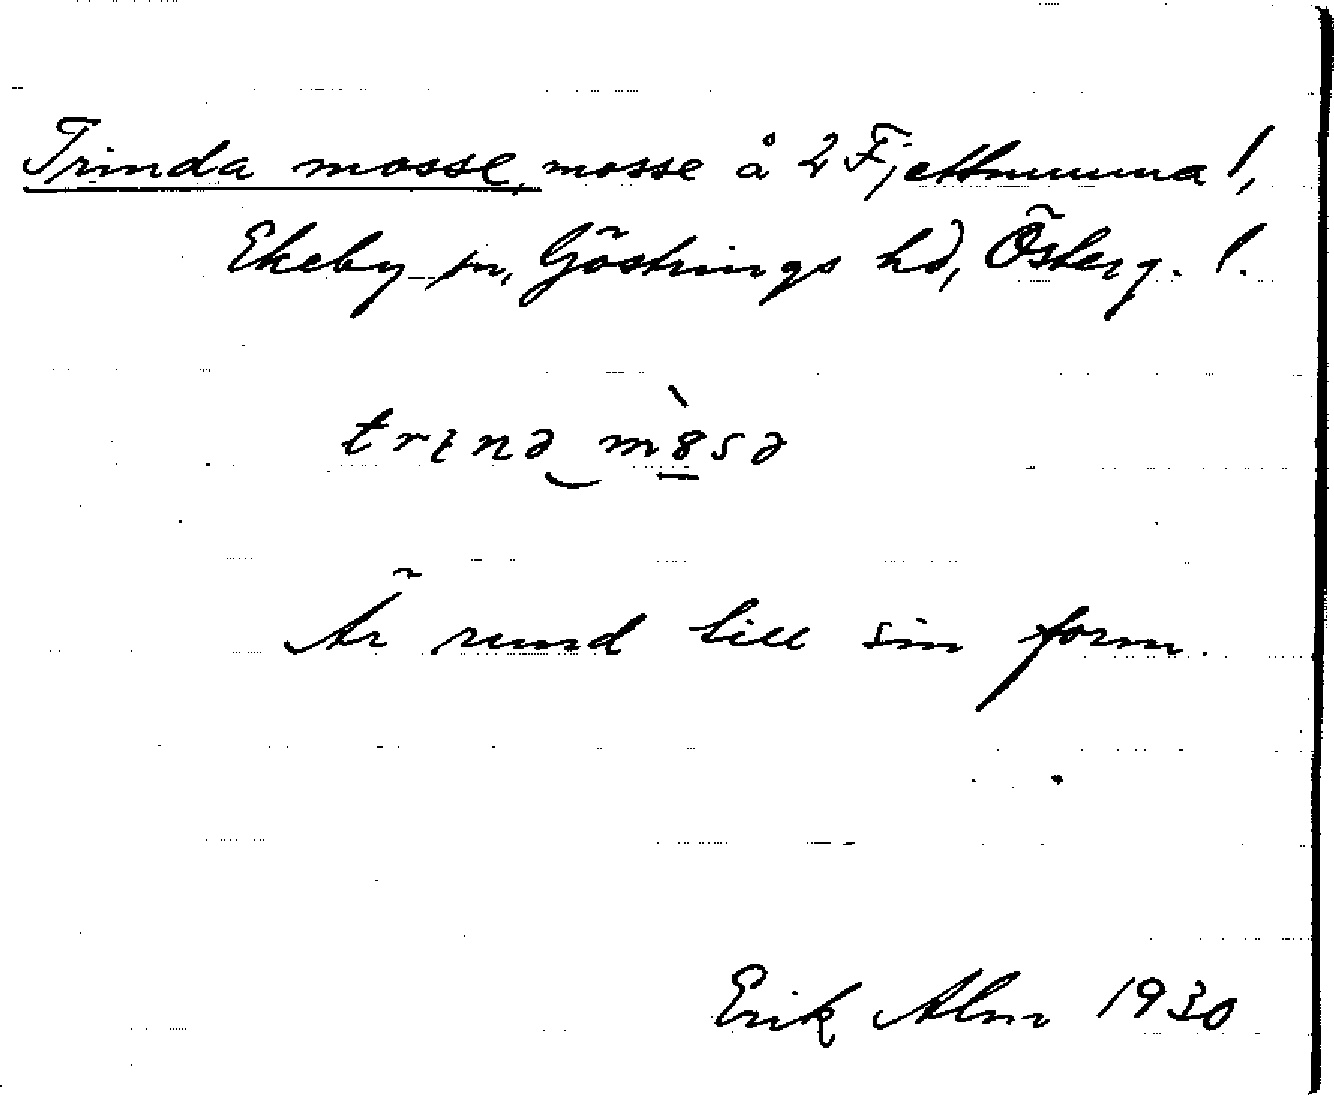 Trinda mosse, mosse å 2 Fjettmunna !,
Ekeby sn, Göstrings hd, Österg. !.
trɩnə mȣ̀sə
Är rund till sin form.
Erik Alm 1930